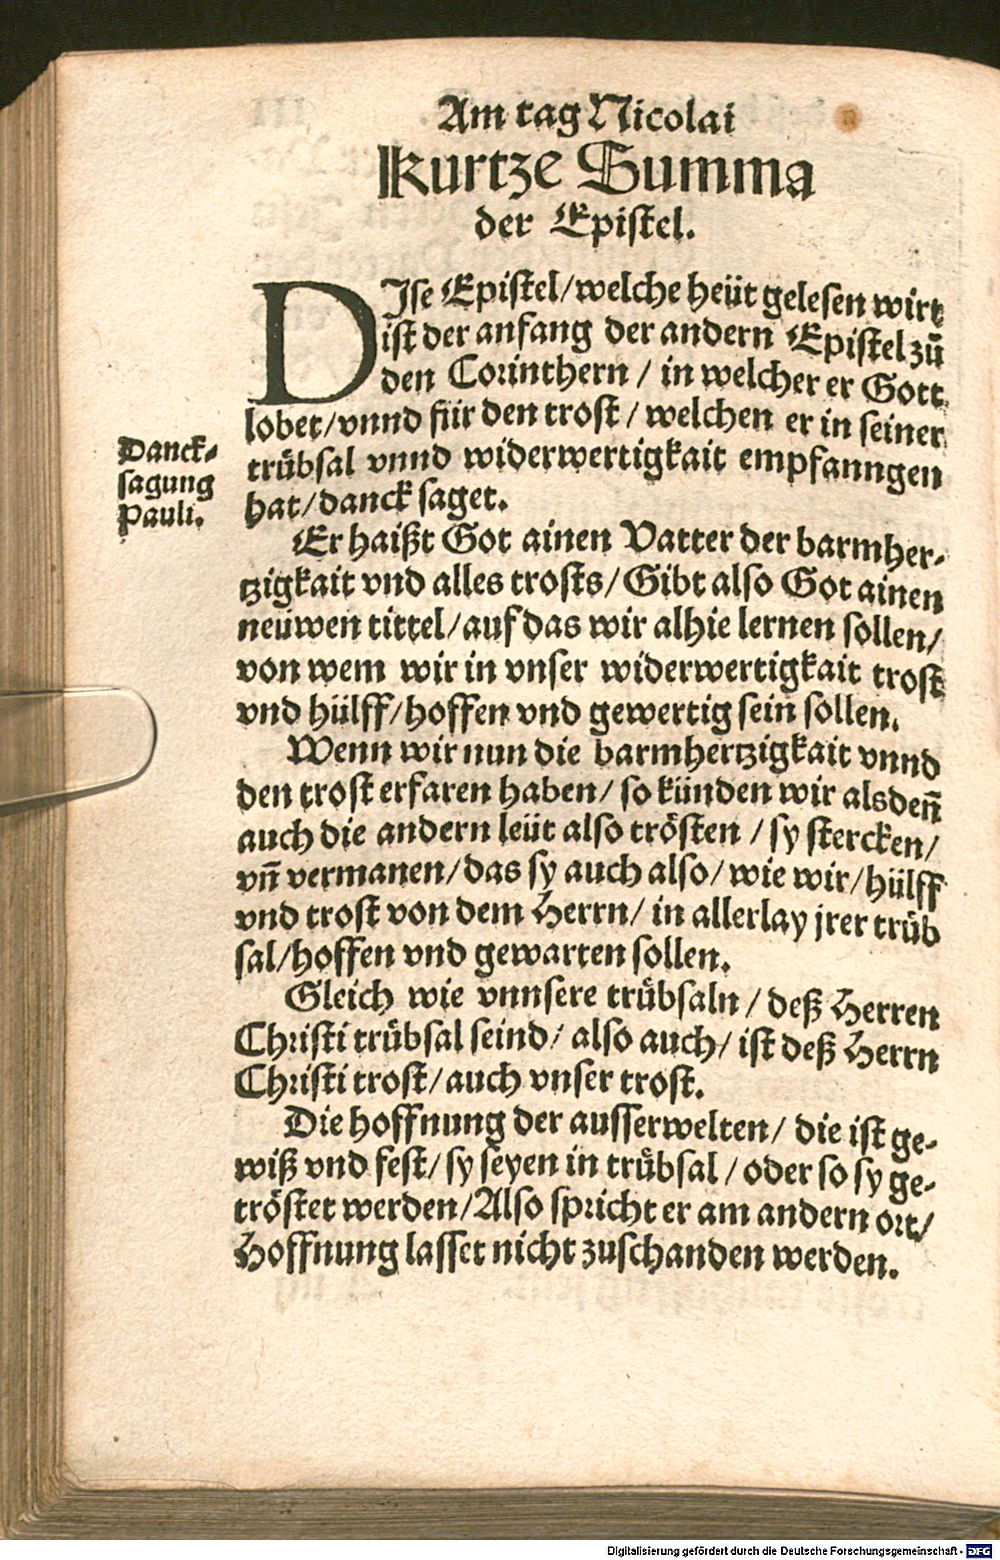 Am tag Nicolai
Kurtze Summa
der Epistel.
DIse Epistel/welche heüt gelesen wirt
ist der anfang der andern Epistel zů
den Corinthern / in welcher er Gott
lobet/vnnd für den trost / welchen er in seiner
trůbsal vnnd widerwertigkait empfanngen
hat/danck saget.
Danck-
sagung
Pauli.
Er haißt Got ainen Vatter der barmher-
tzigkait vnd alles trosts/Gibt also Got ainen
neüwen tittel/auf das wir alhie lernen sollen/
von wem wir in vnser widerwertigkait trost
vnd hülff/hoffen vnd gewertig sein sollen.
Wenn wir nun die barmhertzigkait vnnd
den trost erfaren haben/ so künden wir alsdeñ
auch die andern leüt also trösten / sy stercken/
vñ vermanen/das sy auch also/ wie wir/hülff
vnd trost von dem Herrn/ in allerlay jrer trůb
sal/hoffen vnd gewarten sollen.
Gleich wie vnnsere trůbsaln / deß Herren
Christi trůbsal seind/ also auch/ ist deß Herrn
Christi trost/auch vnser trost.
Die hoffnung der ausserwelten/ die ist ge-
wiß vnd fest/ sy seyen in trůbsal / oder so sy ge-
tröstet werden/Also spricht er am andern ort/
Hoffnung lasset nicht zuschanden werden.
Digitalisierung gefördert durch die Deutsche Forschungsgemeinschaft - DFG